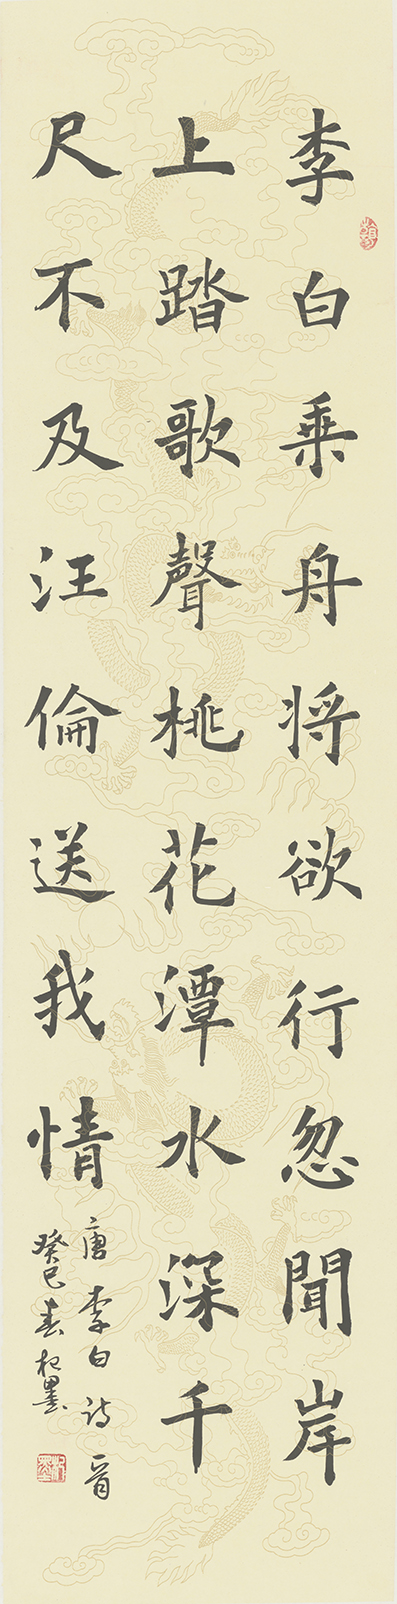 李白乘舟将欲行忽聞岸
上踏歌聲桃花潭水深千
尺不及汪倫送我情
唐李白詩一首
癸巳春杞墨